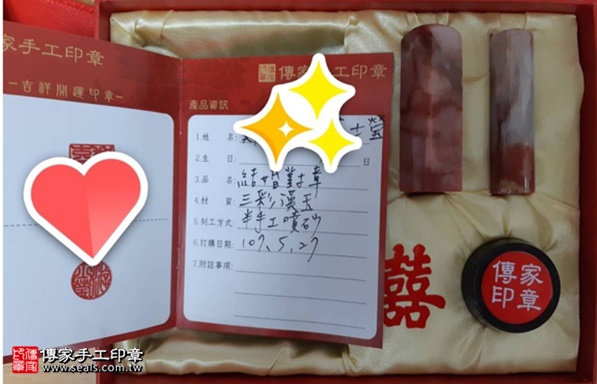 家手工印章
—吉祥開運印章—
傳家手工印章
產品資訊
1.姓 名:
2.生 日: 日
3.品 名: 結婚對章
4.材 質: 三彩漢玉
5.刻工方式: 半手工噴砂
6.訂購日期: 107.5.27
7.附註事項:
囍
傳家
印章
傳家手工印章
www.seals.com.tw